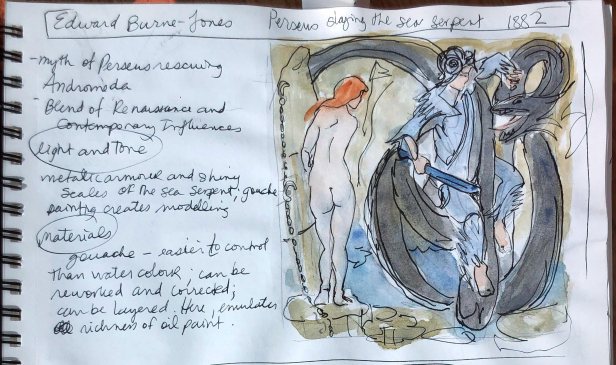 Edward Burne-Jones Perseus slaying the sea serpent 1882
- myth of Perseus rescuing
Andromeda
- Blend of Renaissance and
Contemporary Influences
light and tone
metallic armour and shiny
scales of the sea serpent, gouache
painting creates modelling
materials
gouache - easier to control
than water colour; can be
reworked and corrected;
can be layered. Here, emulates
richness of oil paint.